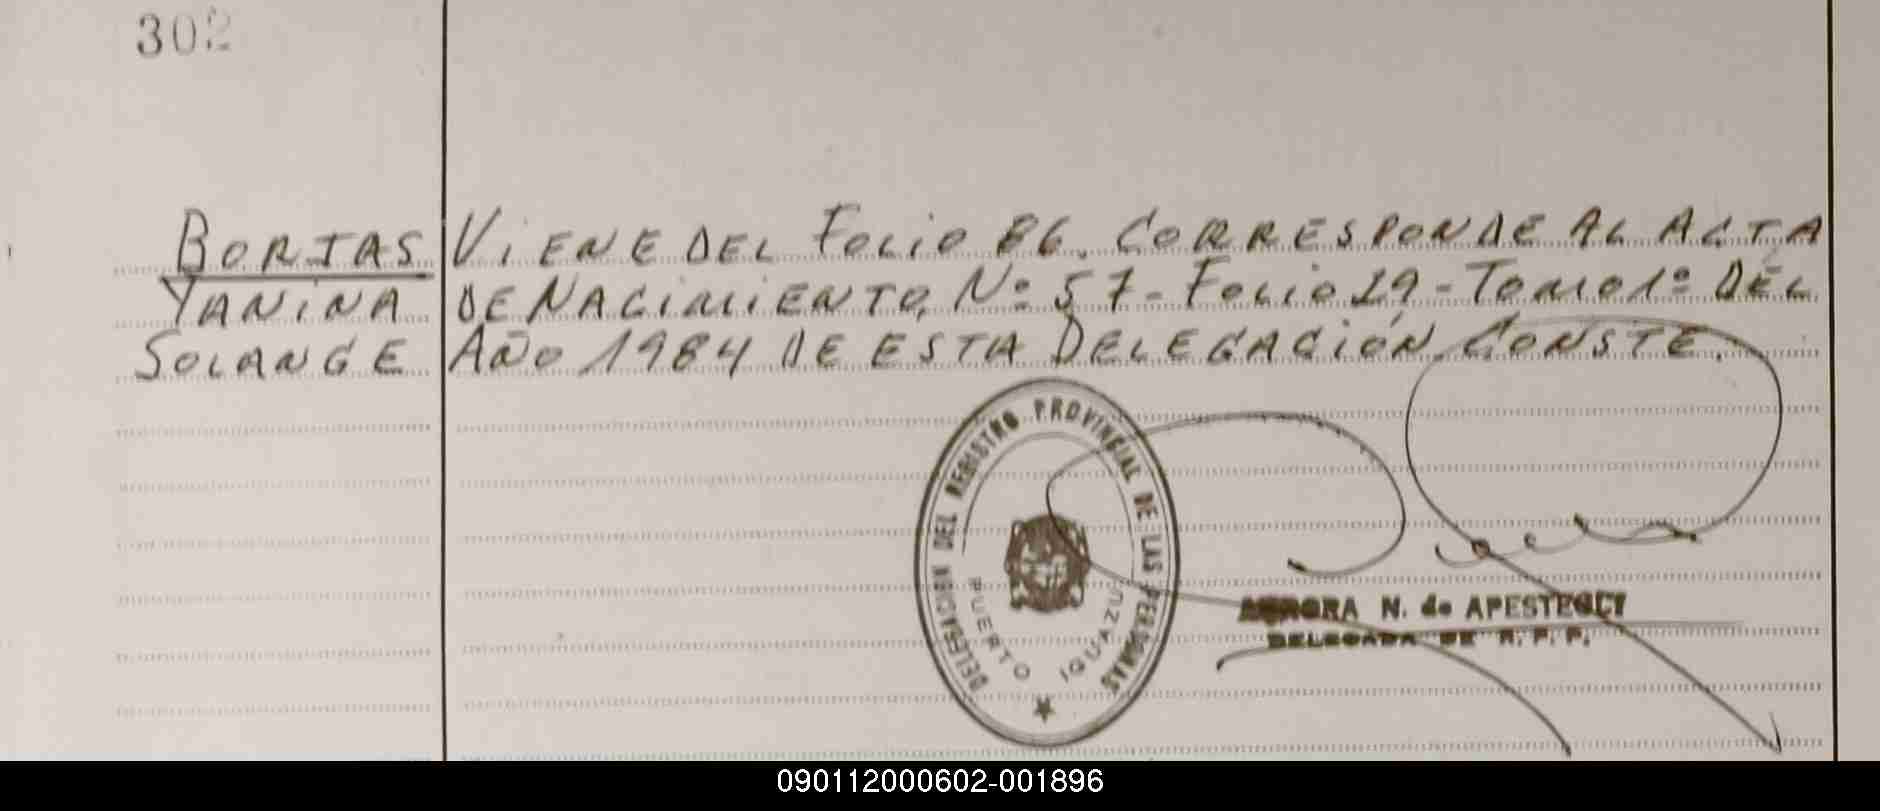 302
BORJAS
YANINA
SOLANGE
VIENE DEL FOLIO 86. CORRESPONDE AL ACTA
DE NACIMIENTO, Nº 57 - FOLIO 29 - TOMO 1º DEL
AÑO 1984 DE ESTA DELEGACIÓN. CONSTE.
DELEGACION DEL REGISTRO PROVINCIAL DE LAS PERSONAS
PUERTO IGUAZU
AURORA N. de APESTEGUI
DELEGADA DE R. P. P.
090112000602-001896